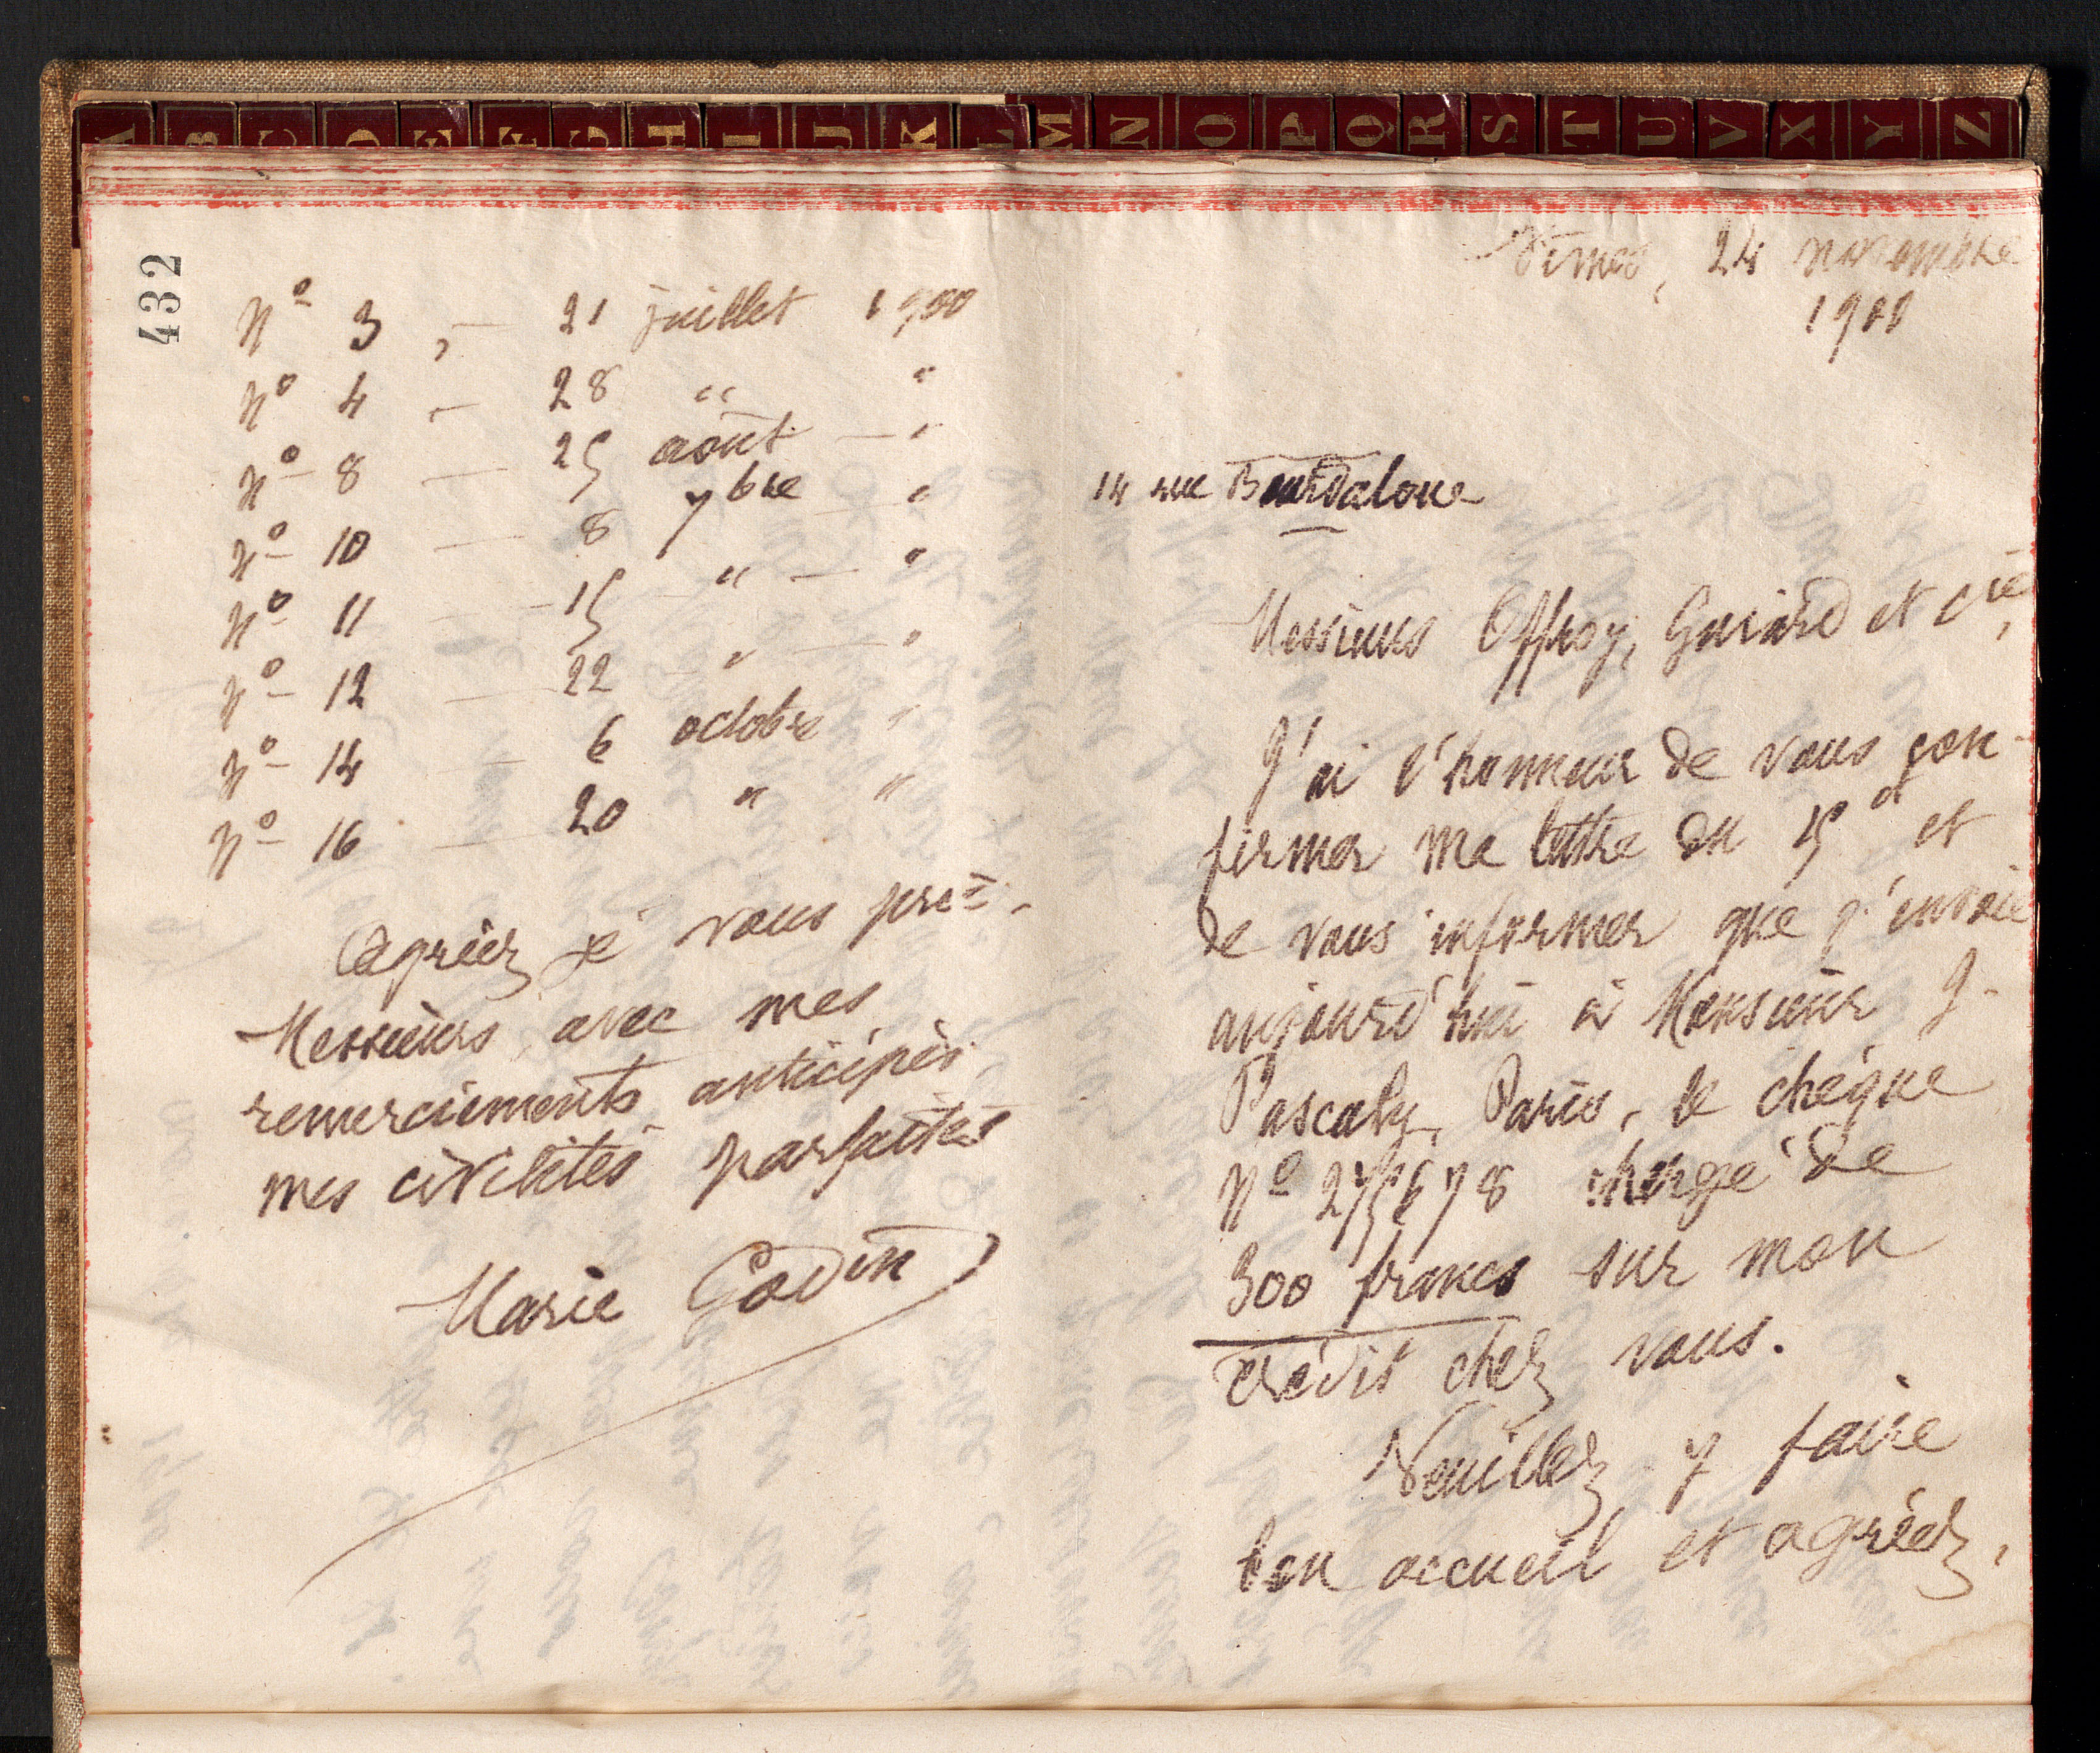 A B C D E F G H I J K L M N O P Q R S T U V X Y Z
432
Nº 3, — 21 juillet 1900
Nº 4 — 28 " "
Nº 8 — 25 août — "
Nº 10 — 8 7bre — "
Nº 11 — 15 " — "
Nº 12 — 22 " — "
Nº 14 — 6 octobre "
Nº 16 — 20 " "
Agréez je vous prie,
Messieurs, avec mes
remerciements anticipés,
mes civilités parfaites
Marie Godin
Nîmes, 24 novembre
1900
14 rue Bourdaloue
Messieurs Offroy, Guiard et Cie,
J'ai l'honneur de vous con-
firmer ma lettre du 15 et
de vous informer que j'envoie
aujourd'hui à Monsieur J.
Pascaly, Paris, le chèque
Nº 275678 chargé de
300 francs sur mon
crédit chez vous.
Veuillez y faire
bon accueil et agréez,